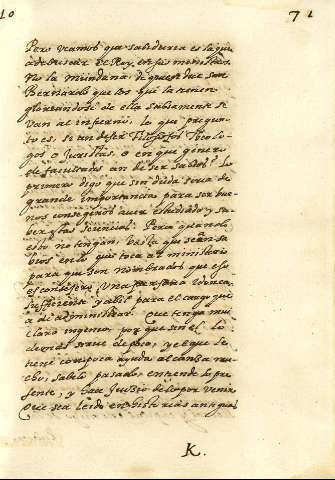 10
71
Pero veamos que sabiduria es la que
a de buscar el Rey, en sus ministros.
No la mundana de que dize san
Bernardo que los que la tienen
gloriandose de ella sabiamente se
van al infierno, lo que pregun-
to es, si an de ser Filosofos Theolo-
gos o Juristas, o en que genero
de facultades an de ser sabios? Lo
primero digo que sin duda seria de
grande importancia para ser bue-
nos consegeros aver estudiado y sa-
ber las sciencias. Pero quando
esto no tengan, basta que sean sa-
bios en lo que toca al ministerio
para que son nombrados que es
el consegero Una persona idonea,
sufficiente y abil para el cargo que
a de administrar. Que tenga mui
claro ingenio, por que sin el, lo
demas sirve de poco, y el que le
tiene con poca ayuda alcanza mu-
cho, sabe lo pasado, entiende lo pre
sente, y haze juizio de lo por venir
Que sea leido en historias antiguas
K.